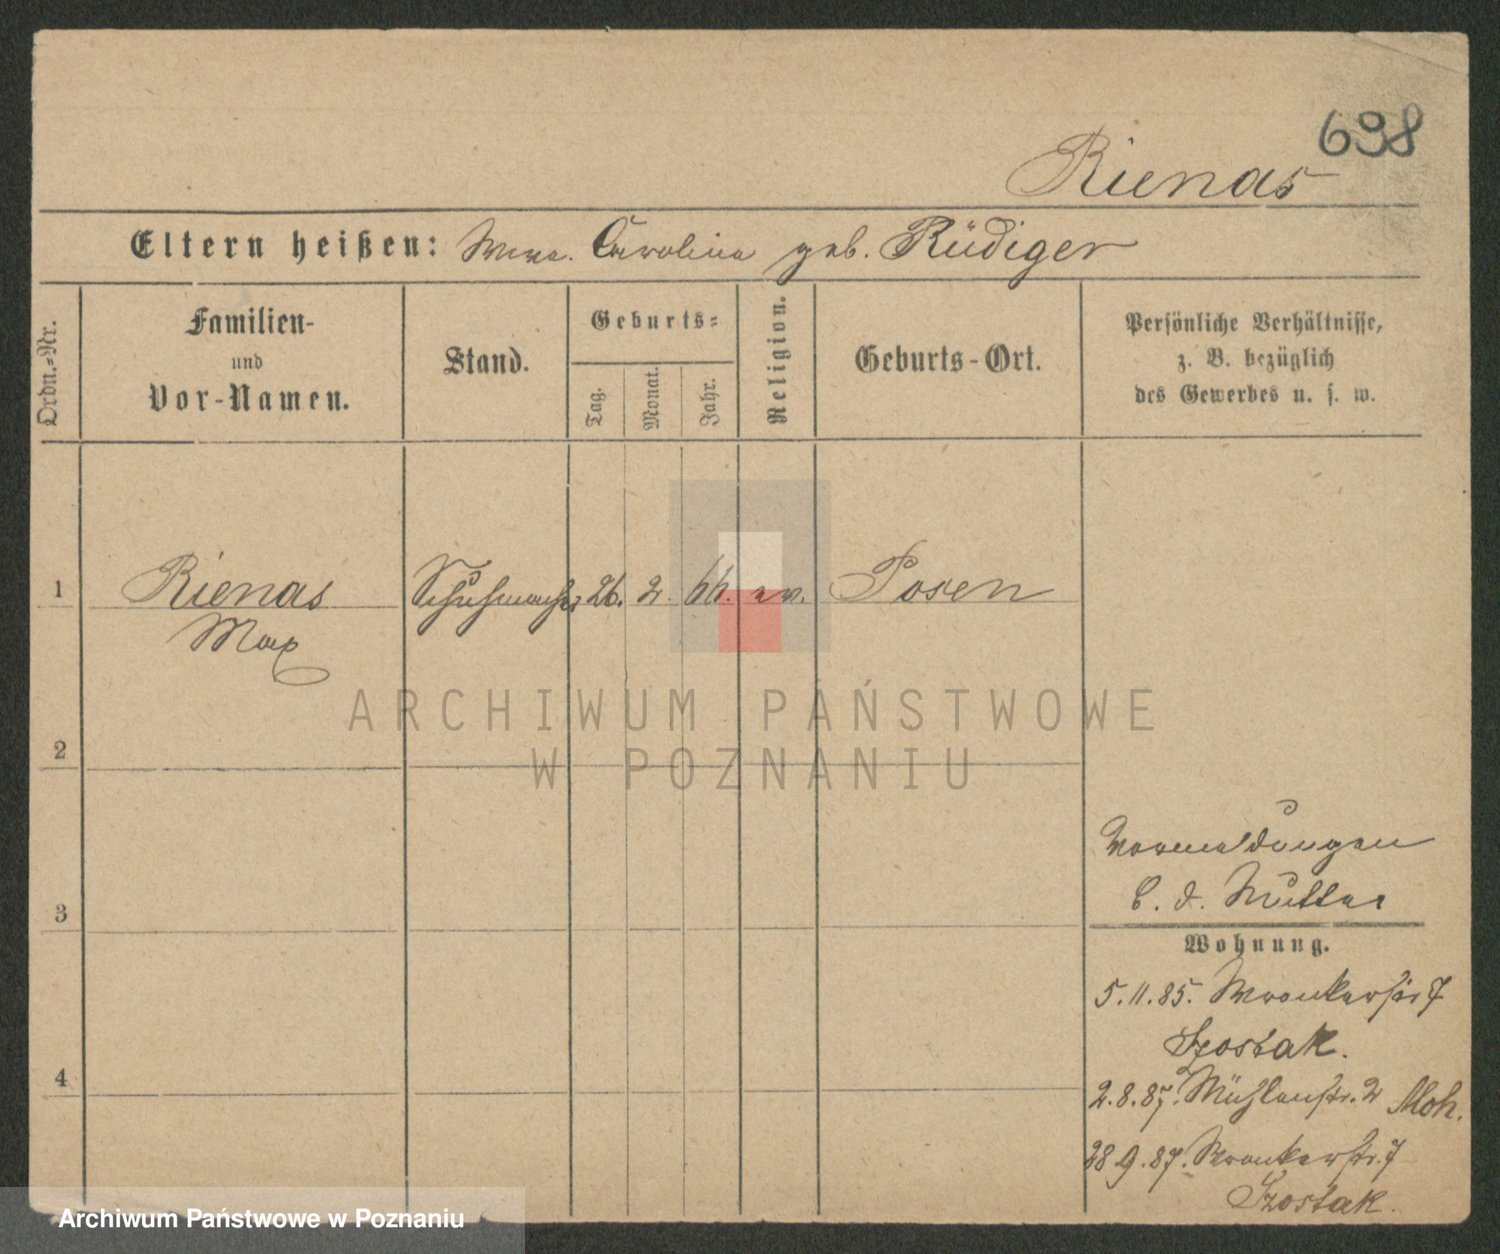 698
Rienas
Eltern heißen: Wwe. Caroline geb. Rüdiger
Ordn.-Nr.
Familien-
und
Vor-Namen.
Stand.
Geburts-
Tag.
Monat.
Jahr.
Religion.
Geburts-Ort.
Persönliche Verhältnisse,
z. B. bezüglich
des Gewerbes u. s. w.
1 Rienas Schuhmacher 26. 2. 66. ev. Posen
Max
ARCHIWUM PAŃSTWOWE
W POZNANIU
2
Vormeldungen
b. d. Mutter
3
Wohnung.
5.11.85. Wronkerstr 7
Szostak.
4
2.8.87. Mühlenstr. 2 Moh.
28 9.87. Wronkerstr. 7
Szostak.
Archiwum Państwowe w Poznaniu